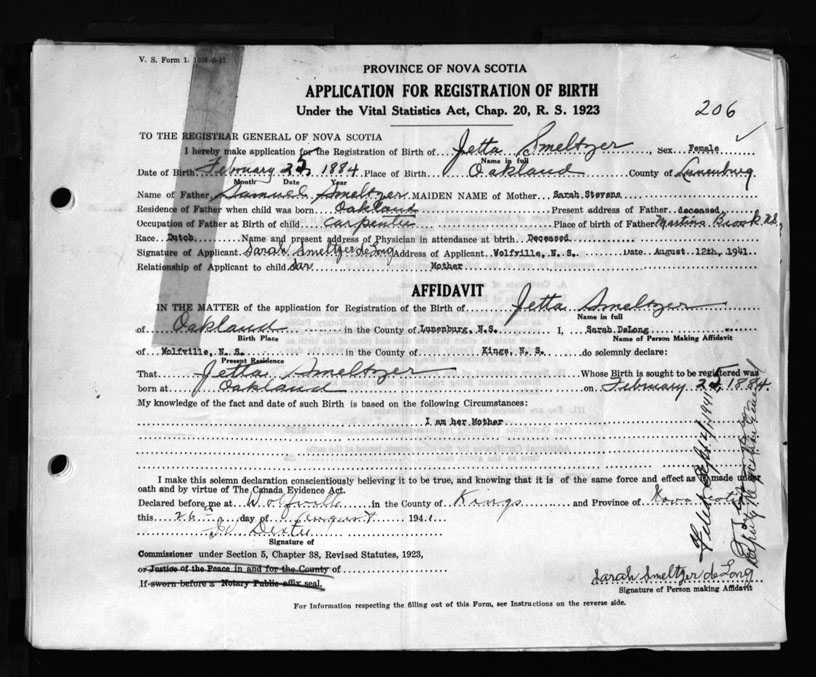 V. S. Form 1.
PROVINCE OF NOVA SCOTIA
APPLICATION FOR REGISTRATION OF BIRTH
Under the Vital Statistics Act, Chap. 20, R. S. 1923
206
TO THE REGISTRAR GENERAL OF NOVA SCOTIA
I hereby make application for the Registration of Birth of Jetta Smeltzer, Sex Female
Name in full
Date of Birth February 25, 1884 Place of Birth Oakland County of Lunenburg
Month Date Year
Name of Father Samuel Smeltzer MAIDEN NAME of Mother Sarah Stevens
Residence of Father when child was born Oakland Present address of Father deceased
Occupation of Father at Birth of child Carpenter Place of birth of Father Martins Brook N.S.
Race Dutch Name and present address of Physician in attendance at birth Deceased
Signature of Applicant Sarah Smeltzer deLong Address of Applicant Wolfville, N. S. Date August 12th, 1941.
Relationship of Applicant to child Mother
AFFIDAVIT
IN THE MATTER of the application for Registration of the Birth of Jetta Smeltzer
Name in full
of Oakland in the County of Lunenburg, N.S. I, Sarah DeLong
Birth Place Name of Person Making Affidavit
of Wolfville, N. S. in the County of Kings, N. S. do solemnly declare:
Present Residence
That Jetta Smeltzer Whose Birth is sought to be registered was
born at Oakland on February 25, 1884
My knowledge of the fact and date of such Birth is based on the following Circumstances:
I am her Mother
I make this solemn declaration conscientiously believing it to be true, and knowing that it is of the same force and effect as if made under
oath and by virtue of The Canada Evidence Act.
Declared before me at Wolfville in the County of Kings and Province of Nova Scotia
this 26 day of August 1941
Signature of
Commissioner under Section 5, Chapter 38, Revised Statutes, 1923,
or Justice of the Peace in and for the County of
If sworn before a Notary Public affix seal.
Sarah Smeltzer deLong
Signature of Person making Affidavit
For Information respecting the filling out of this Form, see Instructions on the reverse side.